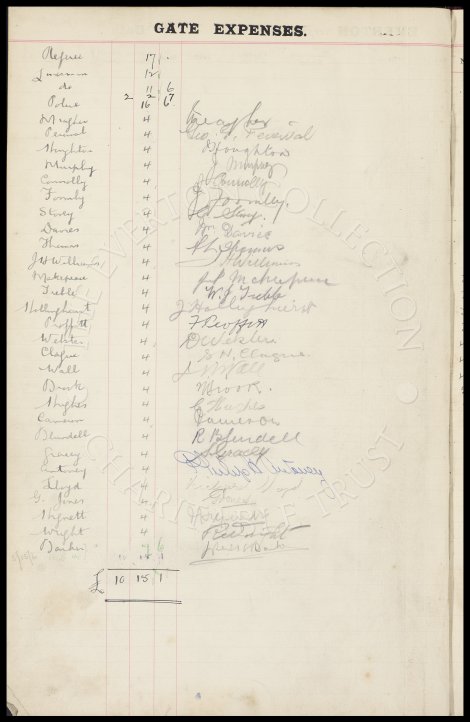 GATE EXPENSES.
Referee 17 .
Linesman 12
do 11 6
Police 2 2
16 6
Meagher 4
Percival 4 Geo. Percival
Houghton 4 Houghton
Murphy 4 J Murphy
Connolly 4 Connolly
Formby 4 J Formby.
Storey 4
Davies 4 Wm Davies
Thomas 4 Thomas
J H Williams 4 Williams
Makepeace 4 Makepeace
Tebble 4 W. J. Tebble
Hollinghurst 4 J Hollinghurst
Proffitt 4 F Proffitt
Webster 4 D Webster
Clague 4 S. H. Clague.
Wall 4 J Wall
Brook 4 Brook.
Hughes 4 E Hughes
Cameron 4 Cameron
Blundell 4 R Blundell
Gracey 4 Gracey
4 Philip
Lloyd 4
G. Jones 4 Jones
Hignett 4
Wright 4
Banker 7 6
£ 10 15 1
EVERTON COLLECTION
CHARITABLE TRUST